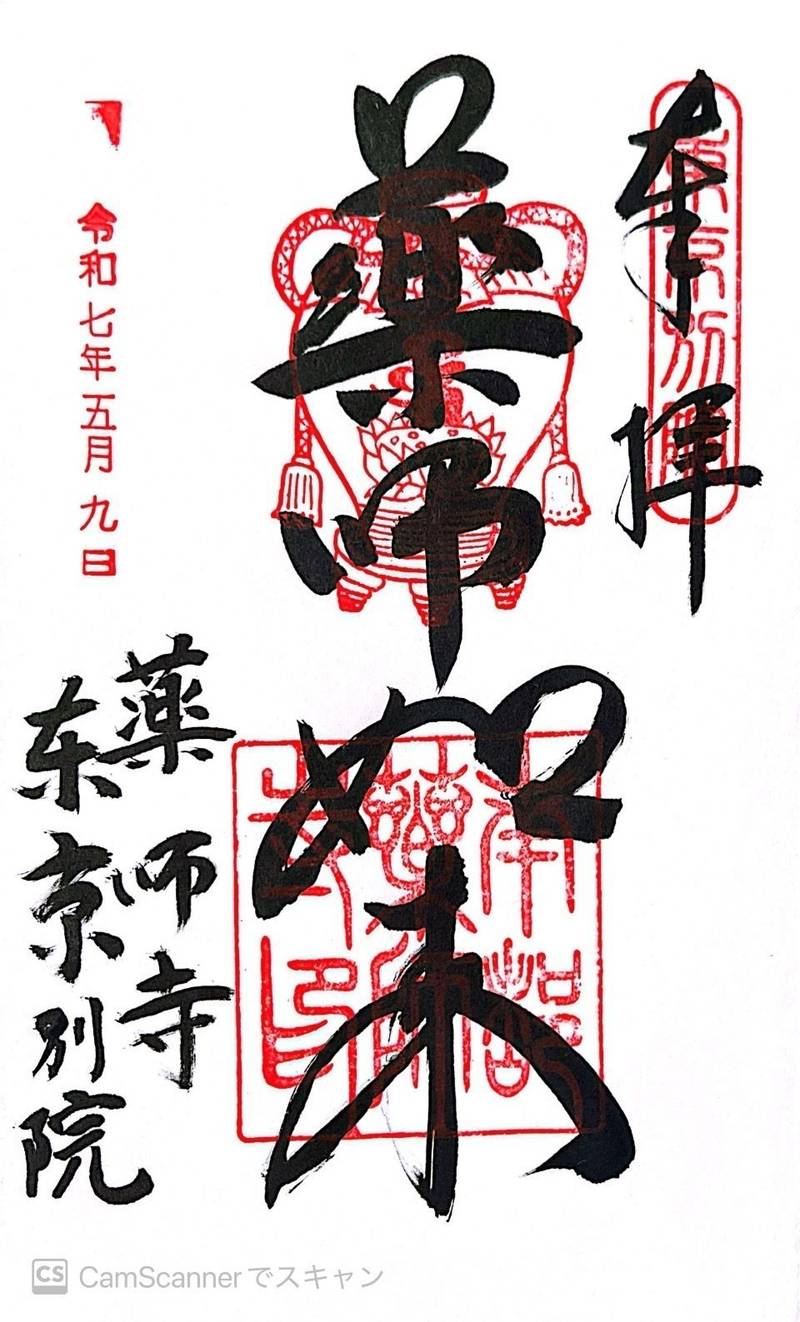 奉拝
東京別院
薬師如来
令和七年五月九日
薬師寺
东京别院
CS CamScannerでスキャン